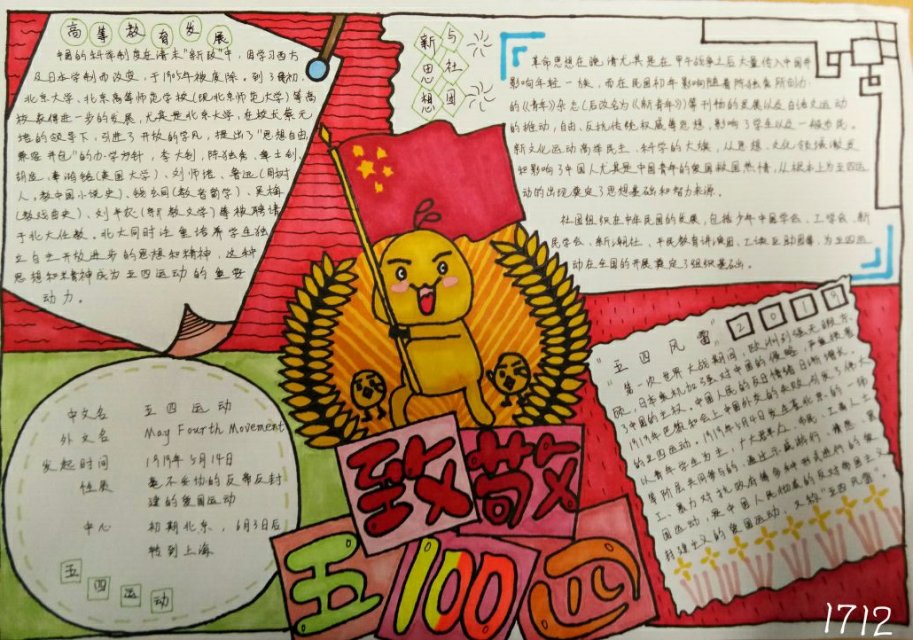 高等教育发展
中国的科举制度在清末"新政"中，因学习西方
及日本学制而改变，于1905年被废除。到了民初，
北京大学、北京高等师范学校(现北京师范大学)等高
校获得进一步的发展，尤其是北京大学，在校长蔡元
培的领导下，引进了开放的学风，提出了"思想自由，
兼容并包"的办学方针，李大钊，陈独秀，
胡适，辜鸿铭(英国大学)、刘师培、鲁迅(周树
人，教中国小说史)、钱玄同(教音韵学)、吴梅
(教戏曲史)、刘半农(教文学)等被聘请
于北大任教。北大同时注重培养学生独
立自主开放进步的思想和精神，这种
思想和精神成为五四运动的重要
动力。
新思想与社团
革命思想在晚清尤其是在甲午战争之后大量传入中国并
影响年轻一族，而在民国初年影响随着陈独秀所创办
的《青年》杂志(后改名为《新青年》)等刊物的发展以及白话文运动
的推动，自由、反抗传统权威等思想，影响了学生以及一般市民。
新文化运动高举民主、科学的大旗，从思想、文化领域激发
和影响了中国人尤其是中国青年的爱国救国热情，从根本上为五四运
动的出现奠定了思想基础和智力来源。
社团组织在中华民国的发展，包括少年中国学会、工学会、新
民学会、新潮社、平民教育讲演团、工读互助团等，为五四运
动在全国的开展奠定了组织基础。
五四风雷
2019
第一次世界大战期间，欧洲列强无暇东
顾，日本乘机加强对中国的侵略，严重损害
了中国的主权。中国人民的反日情绪日渐增长。
1919年巴黎和会上中国外交的失败，引发了伟大
的五四运动。1919年5月4日发生在北京的一场
以青年学生为主，广大群众、市民、工商人士
等阶层共同参与的，通过示威游行、请愿、罢
工、暴力对抗政府等多种形式进行的爱
国运动，是中国人民彻底的反对帝国主义、
封建主义的爱国运动，又称"五四风雷"
中文名 五四运动
外文名 May Fourth Movement
发起时间 1919年5月14日
性质 是不妥协的反帝反封
建的爱国运动
中心 初期北京，6月3日后
转到上海
五四运动
致敬
五100四
1712